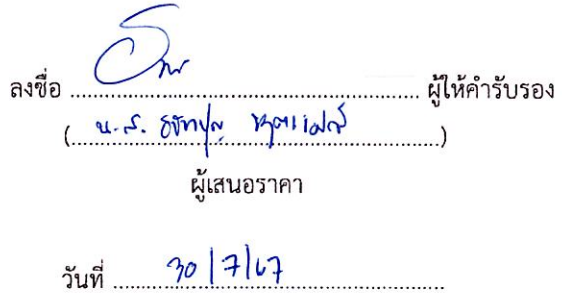 ลงชื่อ ........ ผู้ให้คำรับรอง
( น.ส. )
ผู้เสนอราคา
วันที่ 30/7/67